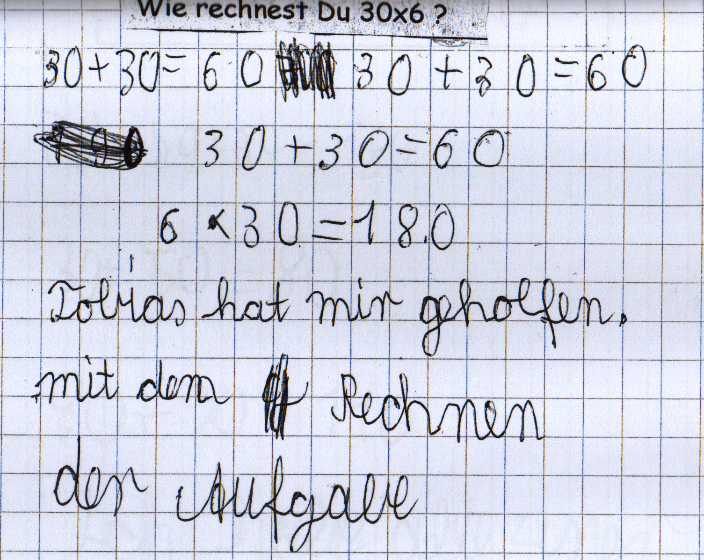 Wie rechnest Du 30x6 ?
30+30=60 30+30=60
30+30=60
6×30=180
Tobias hat mir geholfen.
mit dem Rechnen
der Aufgabe